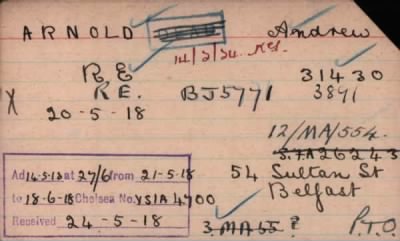 ARNOLD Andrew
DEAD
14/2/24
R E 31430
X RE. BJ5771 3891
20-5-18
12/MA/554.
S.7A26243
Ad 14-5-18 at 27/6 from 21-5-18
to 18-6-18 Chelsea No. YS1A4700
Received 24-5-18
54 Sultan St
Belfast
3 MA55 ? P.T.O